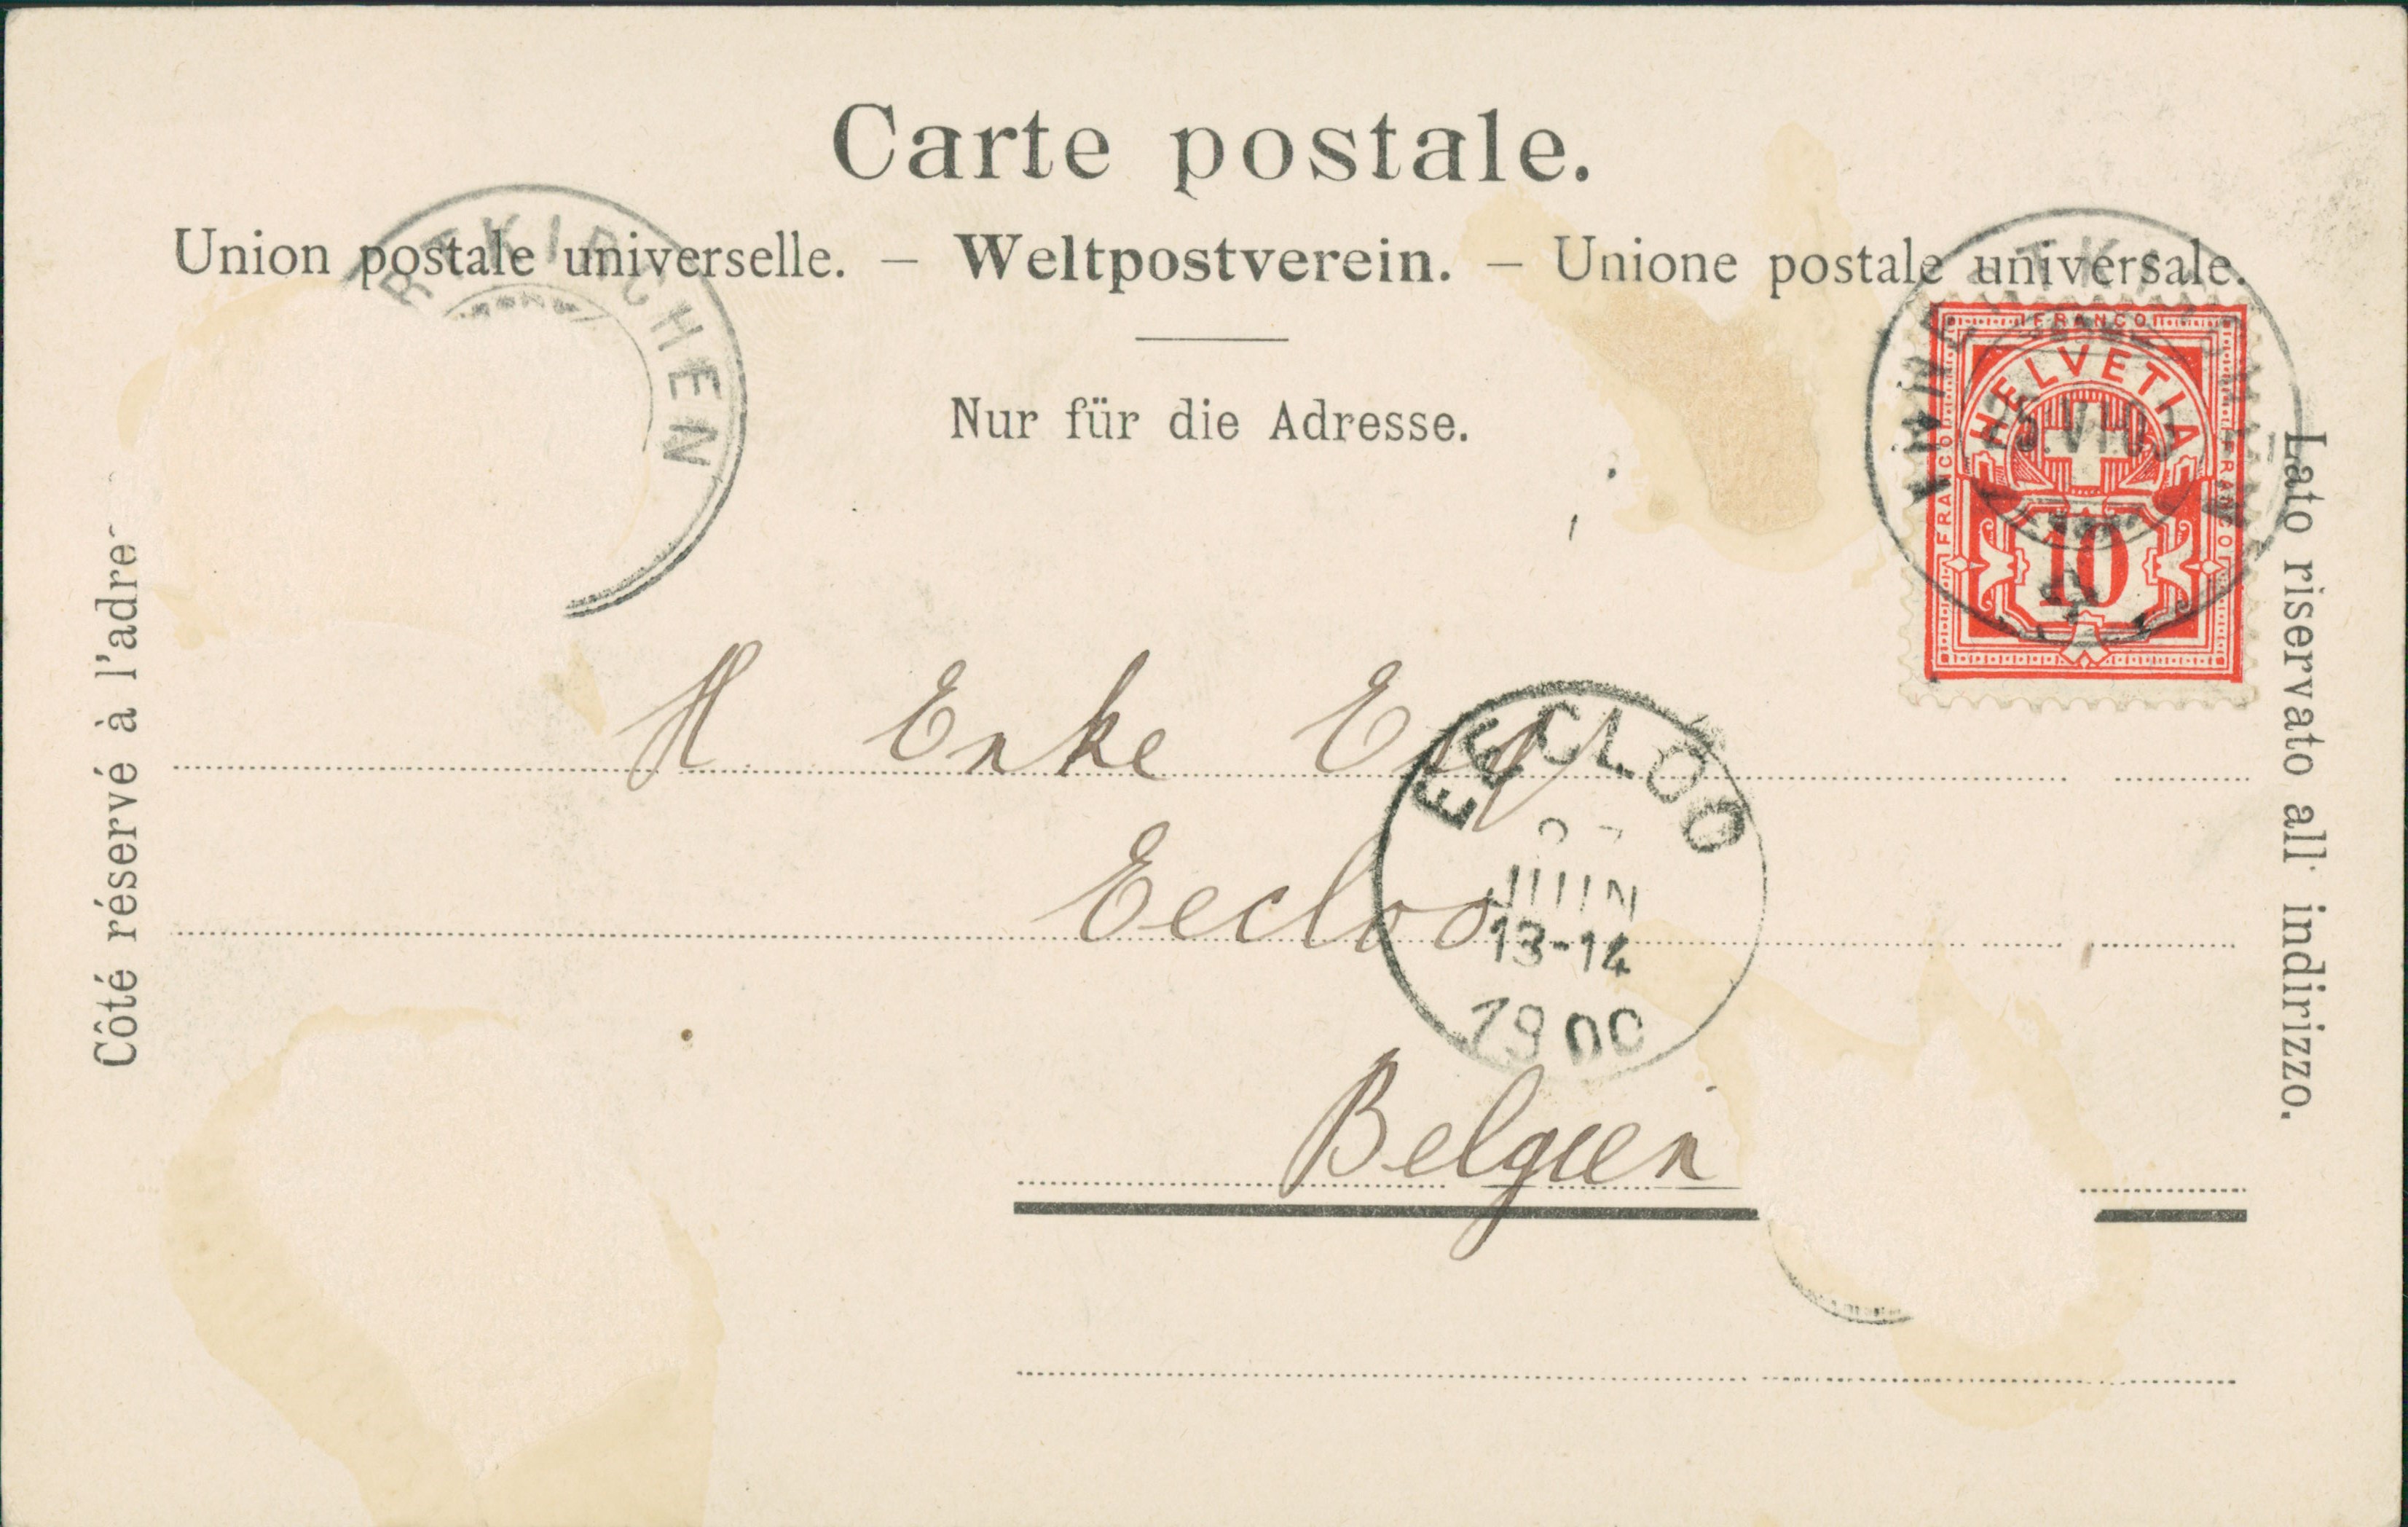 Carte postale.
Union postale universelle. – Weltpostverein. – Unione postale universale.
Nur für die Adresse.
RTKIRCHEN
FRANCO
HELVETIA
FRANCO
FRANCO
25.VI.00
10
Côté réservé à l'adre
Lato riservato all' indirizzo.
H Enke Esq
EECLOO
Eecloo
JUIN
13-14
1900
Belgien